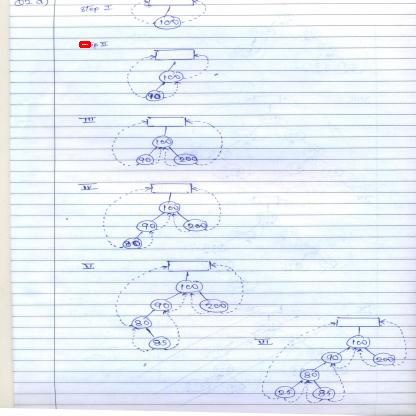 Q2 a)
Step I
100
100
90
III
100
90 200
IV
100
90 200
80
V
100
90 200
80
85
VI
100
90 200
80
25 85